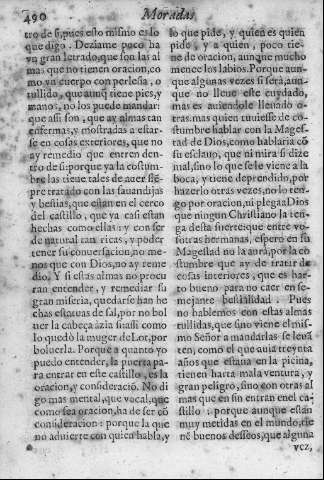 490
Moradas
tro de si, pues esto mismo es lo
que digo. Deziame poco ha
vn gran letrado, que son las al
mas que no tienen oracion, co
mo vn cuerpo con perlesia, o
tullido, que aunq̃ tiene pies, y
manos, no los puede mandar:
que assi son, que ay almas tan
enfermas, y mostradas a estar-
se en cosas exteriores, que no
ay remedio que entren den-
tro de si: porque ya la costum
bre las tiene tales de auer siẽ-
pre tratado con las sauandijas
y bestias, que estan en el cerco
del castillo, que ya casi estan
hechas como ellas: y con ser
de natural tan ricas, y poder
tener su conuersacion, no me-
nos que con Dios, no ay reme
dio. Y si estas almas no procu
ran entender, y remediar su
gran miseria, quedarse han he
chas estatuas de sal, por no bol
uer la cabeça àzia si: assi como
lo quedò la muger de Lot, por
boluerla. Porque a quanto yo
puedo entender, la puerta pa-
ra entrar en este castillo, es la
oracion, y consideració. No di
go mas mental, que vocal, que
como sea oracion, ha de ser cõ
consideracion: porque la que
no aduierte con quien habla, y
lo que pide, y quien es quien
pide, y a quien, poco tie-
ne de oracion, aunque mucho
menee los labios. Porque aun-
que algunas vezes si serà, aun-
que no lleue este cuydado,
mas es auiendole lleuado o-
tras. mas quien tuuiesse de co-
stumbre hablar con la Mages-
tad de Dios, como hablaria cõ
su esclauo, que ni mira si dize
mal, sino lo que se le viene a la
boca, y tiene deprendido, por
hazerlo otras vezes, no lo ten-
go por oracion, ni plega a Dios
que ningun Christiano la ten-
ga desta suerte: que entre vo-
sotras hermanas, espero en su
Magestad no la aurà, por la co
stumbre que ay de tratar de
cosas interiores, que es har-
to bueno para no caer en se-
mejante bestialidad. Pues
no hablemos con estas almas
tullidas, que sino viene el mis-
mo Señor a mandarlas se leuã
ten, como el que auia treynta
años que estaua en la picina,
tienen harta mala ventura, y
gran peligro, sino con otras al
mas que en fin entran en el ca-
stillo: porque aunque están
muy metidas en el mundo, tie
nẽ buenos desseos, que alguna
vez,